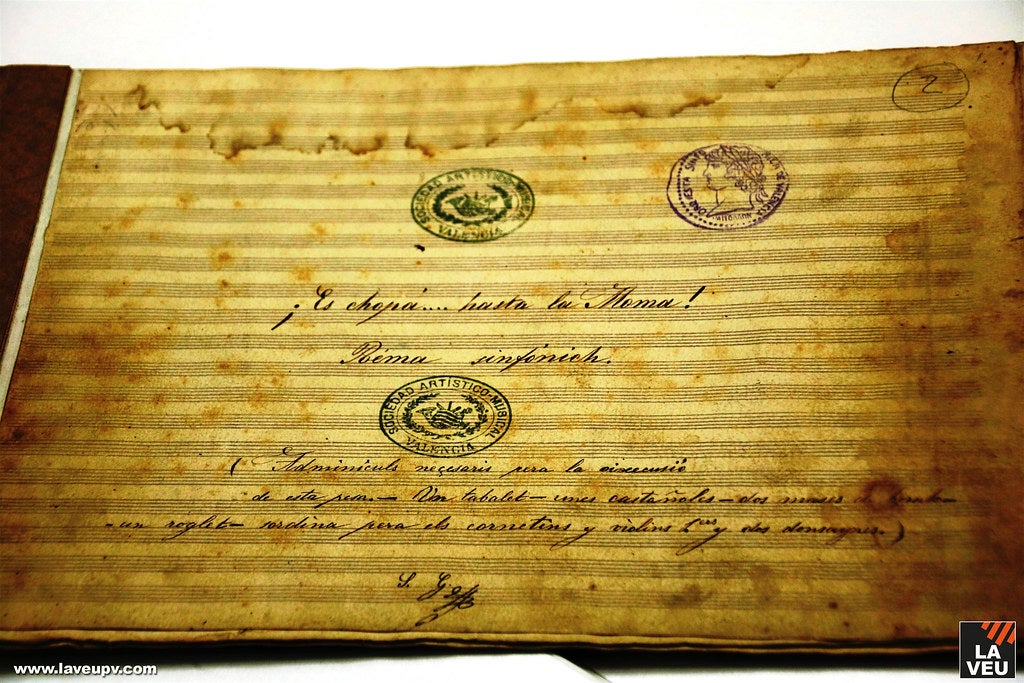 2
SOCIEDAD ARTÍSTICO-MUSICAL
VALENCIA
ORQUESTA DE VALENCIA
¡Es chopá.... hasta la Moma!
Poema sinfónich.
SOCIEDAD ARTÍSTICO-MUSICAL
VALENCIA
( Adminículs neçesaris pera la
de esta pesa.— Un tabalet — unes castañoles — dos mases de
- un roglet — sordina pera els cornetins y violins 1.ers y dos donsaynes. )
S. G.
www.laveupv.com
LA
VEU